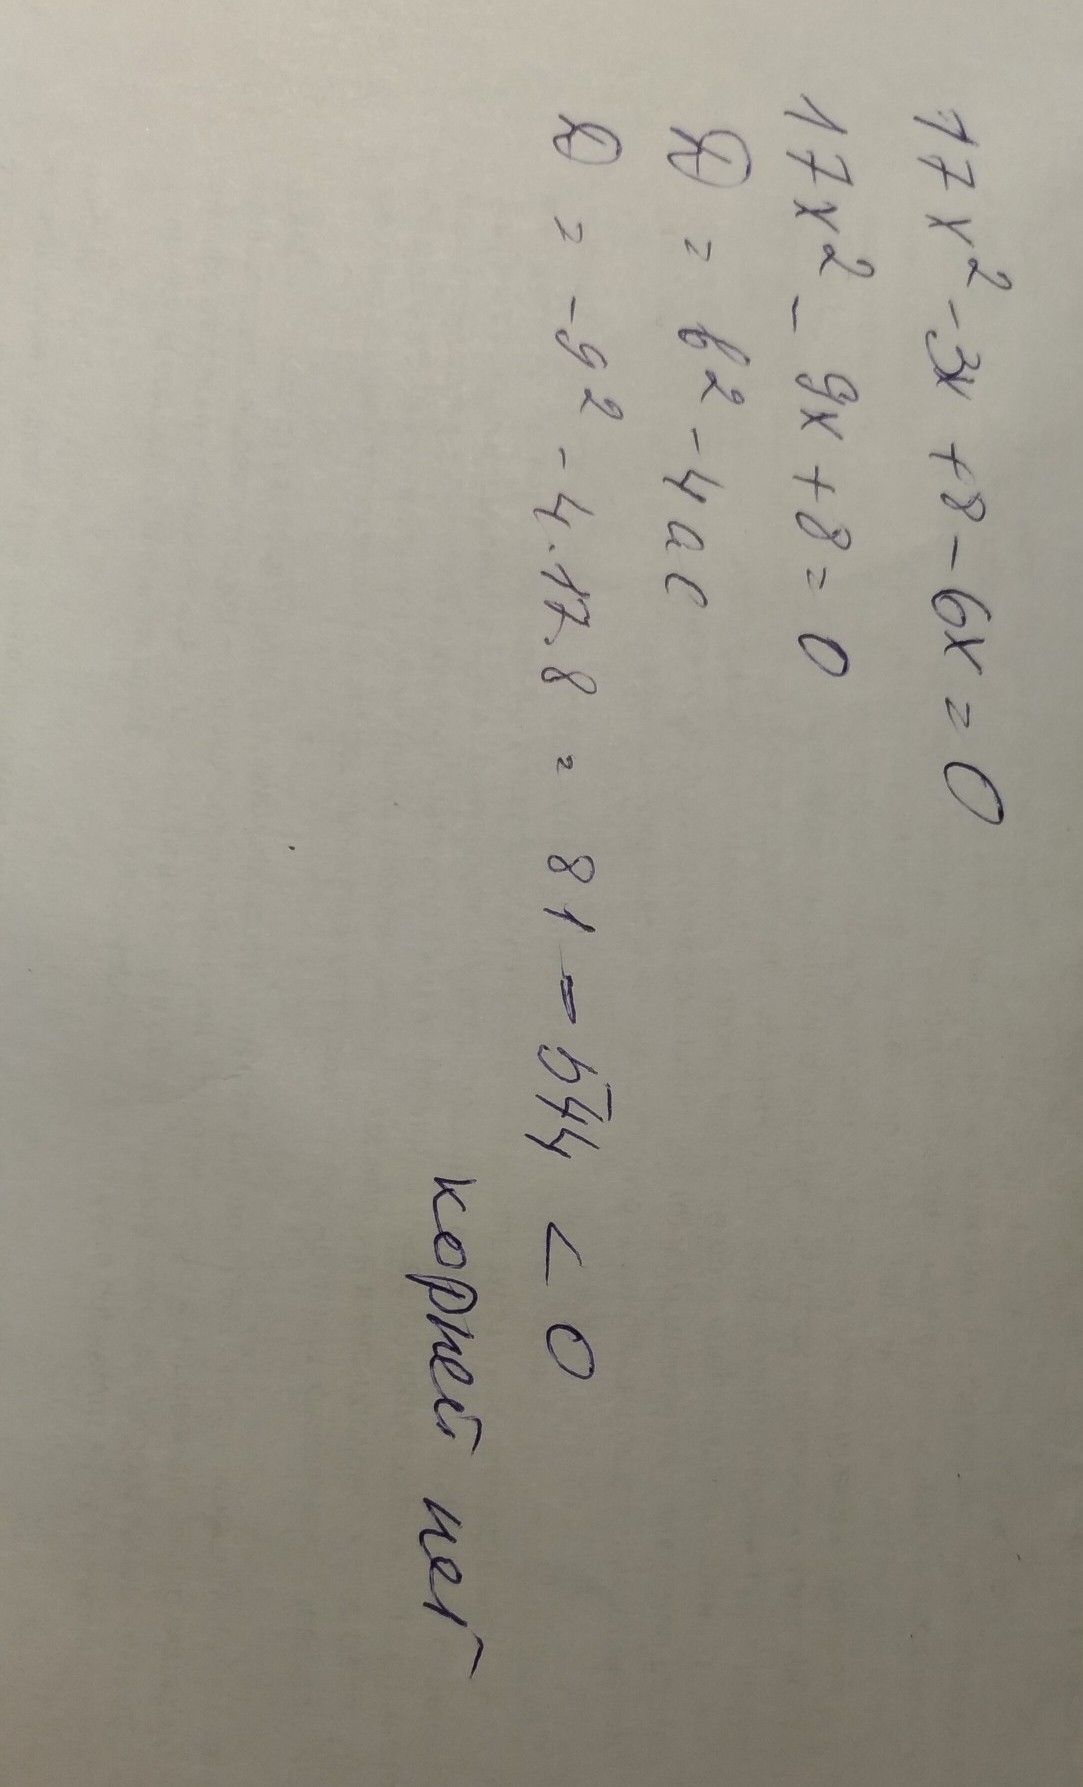 17x² - 3x + 8 - 6x = 0
17x² - 9x + 8 = 0
D = b² - 4ac
D = -9² - 4·17·8 = 81 - 544 < 0
корней нет